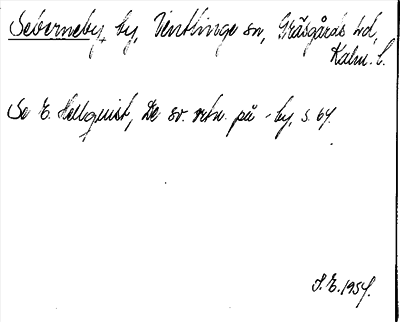 Seberneby, by, Ventlinge sn, Gräsgårds hd,
Kalm. l.
Se E. Hellquist, De sv. ortn. på -by, s. 64.
S.E. 1954.